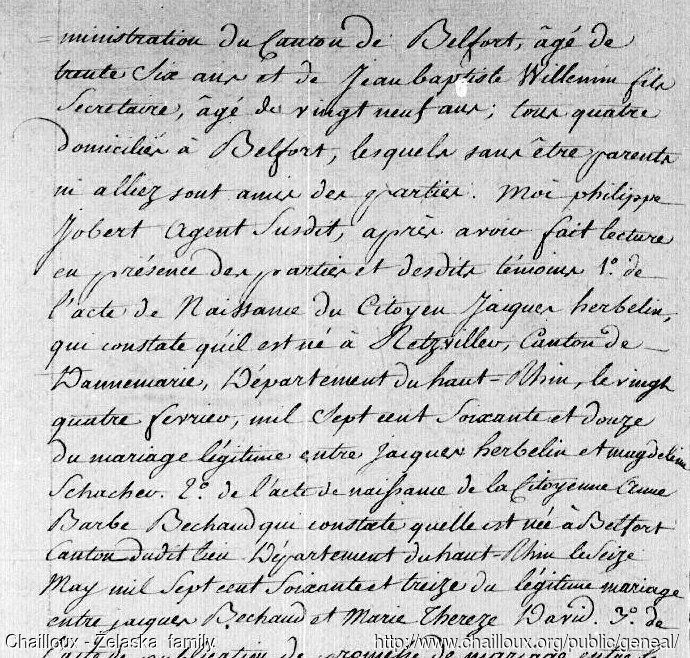 ministration du Canton de Belfort, âgé de
trente Six ans et de Jean baptiste Willemin fils
Secretaire, âgé de vingt neuf ans; tous quatre
domiciliés à Belfort, lesquels sans être parents
ni alliez sont amis des parties. Moi philippe
Jobert Agent Susdit, après avoir fait lecture
en présence des parties et desdits témoins 1.º de
l'acte de Naissance du Citoyen Jacques herbelin,
qui constate qu'il est né à Retzviller, Canton de
Dannemarie, Département du haut-Rhin, le vingt
quatre fevrier, mil Sept cent Soixante et douze
du mariage légitime entre jacques herbelin et magdeleine
Schacher. 2.º de l'acte de naissance de la Citoyenne Anne
Barbe Bechaud qui constate quelle est née à Belfort
Canton dudit lieu Département du haut-Rhin le Seize
May mil Sept cent Soixante et treize du légitime mariage
entre jacques Bechaud et Marie Thereze David. 3.º de
l'acte de publication de promesse de mariage entre
Chailloux - Zelaska family
http://www.chailloux.org/public/geneal/